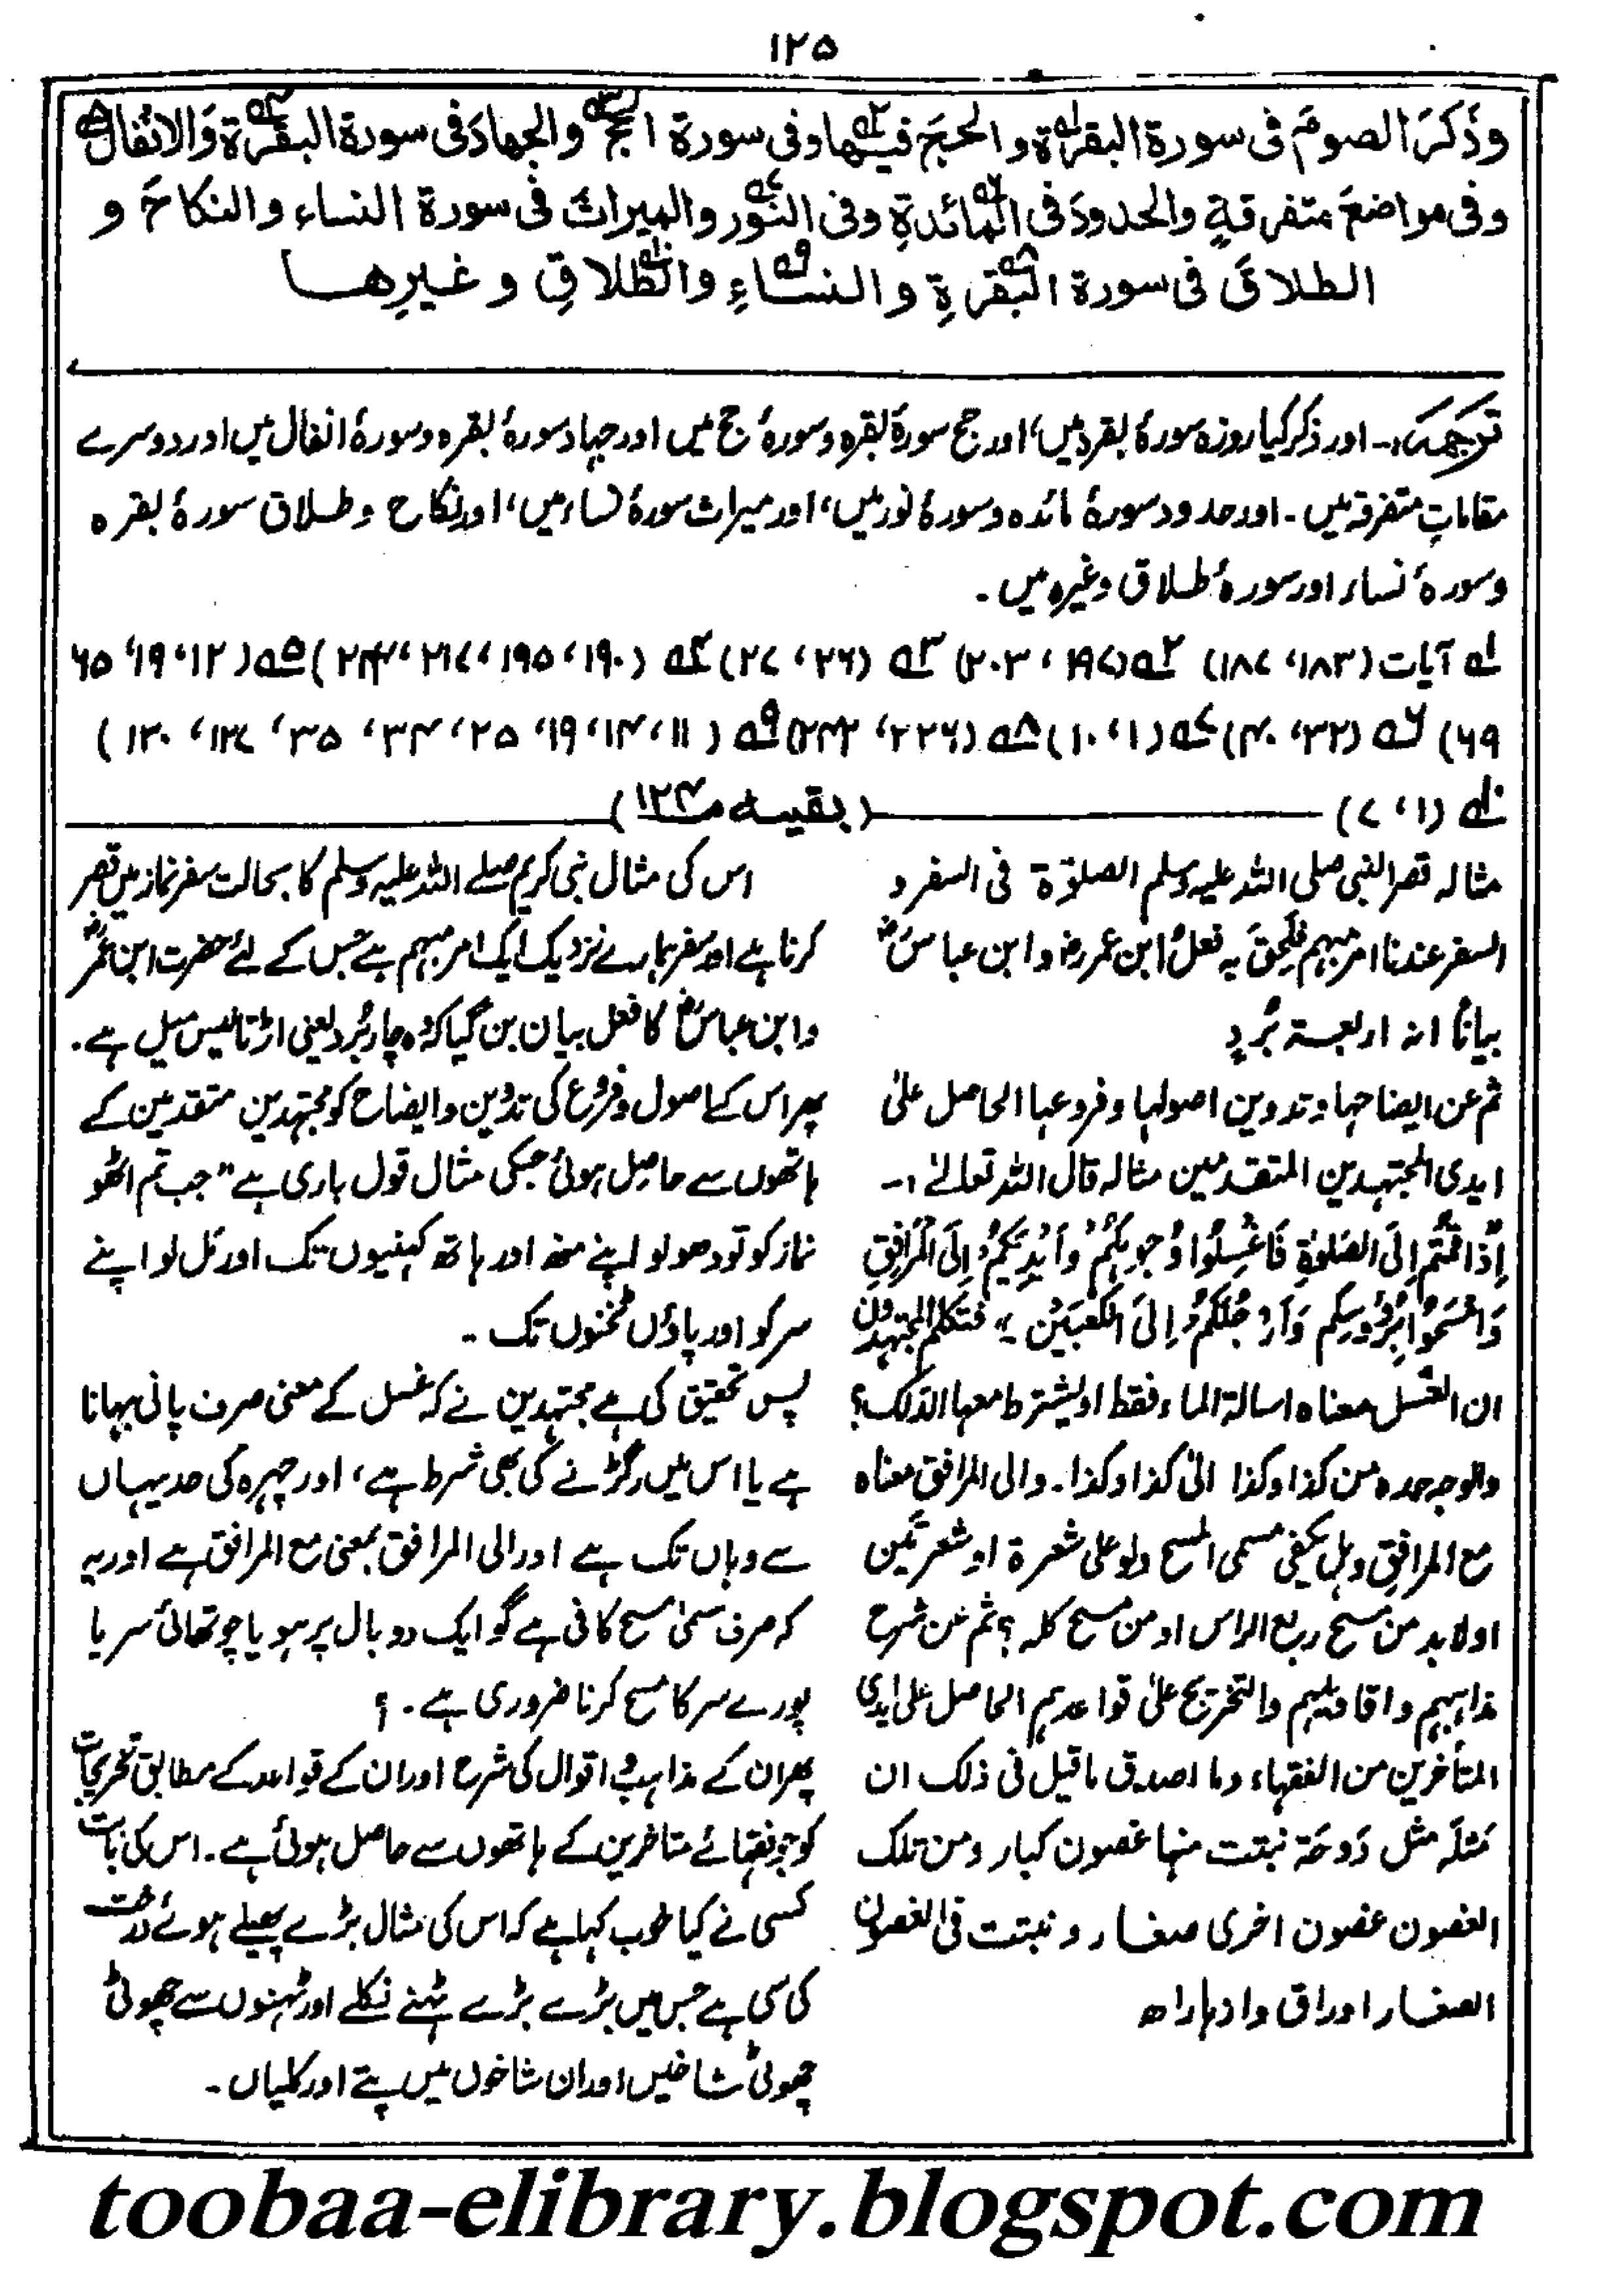 ١٢٥
وذَكرَ الصومَ فی سورة البقرة۱ والحجَ فیها۲ وفی سورة الحج۳ والجهادَ فی سورة البقرة۴ وَالانفال۵
وفی مواضعَ متفرقةٍ والحدودَ فی المائدةِ۶ وفی النور۷ والمیراثَ فی سورة النساء والنکاحَ و
الطلاقَ فی سورة البقرةِ۸ والنساءِ۹ والطلاقِ۱۰ وغیرِها
ترجمہ:۔ اور ذکر کیا روزہ سورۂ بقرہ میں، اور حج سورۂ بقرہ وسورۂ حج میں اور جہاد سورۂ بقرہ وسورۂ انفال میں اور دوسرے
مقاماتِ متفرقہ میں۔ اور حدود سورۂ مائدہ وسورۂ نور میں، اور میراث سورۂ نساء میں، اور نکاح وطلاق سورۂ بقرہ
وسورۂ نساء اور سورۂ طلاق وغیرہ میں۔
۱؎ آیات (۱۸۳، ۱۸۷) ۲؎ (۱۹۷، ۲۰۳) ۳؎ (۲۶، ۲۷) ۴؎ (۱۹۰، ۱۹۵، ۲۱۷، ۲۴۴) ۵؎ (۱۲، ۱۹، ۶۵
۶۹) ۶؎ (۳۲، ۴۰) ۷؎ (۱، ۱۰) ۸؎ (۲۲۶، ۲۴۲) ۹؎ (۱۱، ۱۴، ۱۹، ۲۵، ۳۴، ۳۵، ۱۲۷، ۱۳۰)
۱۰؎ (۱، ۷) (بقیہ ص۱۲۴)
مثالہ قصر النبی صلی اللہ علیہ وسلم الصلوٰة فی السفر و
السفر عندنا امر مبہم فلَحِقَ بہ فعلُ ابن عمرؓ و ابن عباسؓ
بیانًا انہ اربعۃ بُرُدٍ
ثم عن ایضاحہا وتدوین اصولہا وفروعہا الحاصل علیٰ
ایدی المجتہدین المتقدمین مثالہ قال اللہ تعالیٰ:۔
إِذَا قُمْتُم إِلَى الصَّلوٰةِ فَاغْسِلُوا وُجُوهَكُمْ وَأَيْدِيَكُمْ إِلَى الْمَرَافِقِ
وَامْسَحُوا بِرُءُوسِكُم وَأَرْجُلَكُمْ إِلَى الْكَعْبَيْنِ" فتکلم المجتہدون
ان الغسل معناہ اسالۃ الماء فقط او یشترط معہا الدلک؟
والوجہ حدہ من کذا وکذا الیٰ کذا وکذا۔ والی المرافق معناہ
مع المرافق وہل یکفی مسمی المسح ولو علی شعرة او شعرتَین
اولا بد من مسح ربع الراس او من مسح کلہ؟ ثم عن شرح
مذاہبہم واقاویلہم والتخریج علیٰ قواعدہم الحاصل علی ایدی
المتأخرین من الفقہاء وما اصدق ماقیل فی ذلک ان
مَثلَہ مثل دَوحَۃ نبتت منہا غصون کبار ومن تلک
الغصون غصون اخری صغار ونبتت فی الغصون
الصغار اوراق وازہار اھ
اس کی مثال نبی کریم صلے اللہ علیہ وسلم کا بحالت سفر نماز میں قصر
کرنا ہے اور سفر ہمارے نزدیک ایک امر مبہم ہے جس کے لئے حضرت ابن عمرؓ
وابن عباسؓ کا فعل بیان بن گیا کہ وہ چار بُرد یعنی اڑتالیس میل ہے۔
پھر اس کے اصول وفروع کی تدوین وایضاح کو مجتہدین متقدمین کے
ہاتھوں سے حاصل ہوئی جسکی مثال قول باری ہے "جب تم اٹھو
نماز کو تو دھولو اپنے منھ اور ہاتھ کہنیوں تک اور مَل لو اپنے
سر کو اور پاؤں ٹخنوں تک۔
پس تحقیق کی ہے مجتہدین نے کہ غسل کے معنی صرف پانی بہانا
ہے یا اس میں رگڑنے کی بھی شرط ہے، اور چہرہ کی حد یہاں
سے وہاں تک ہے اور الی المرافق بمعنی مع المرافق ہے اور یہ
کہ صرف مسمیٰ مسح کافی ہے گو ایک دو بال پر ہو یا چوتھائی سر یا
پورے سر کا مسح کرنا ضروری ہے۔؟
پھر ان کے مذاہب واقوال کی شرح اور ان کے قواعد کے مطابق تخریجات
کو جو فقہائے متاخرین کے ہاتھوں سے حاصل ہوئی ہے۔ اس کی بابت
کسی نے کیا خوب کہا ہے کہ اس کی مثال بڑے پھیلے ہوئے درخت
کی سی ہے جس میں بڑے بڑے ٹہنے نکلے اور ٹہنوں سے چھوٹی
چھوٹی شاخیں اور ان شاخوں میں پتے اور کلیاں۔
toobaa-elibrary.blogspot.com